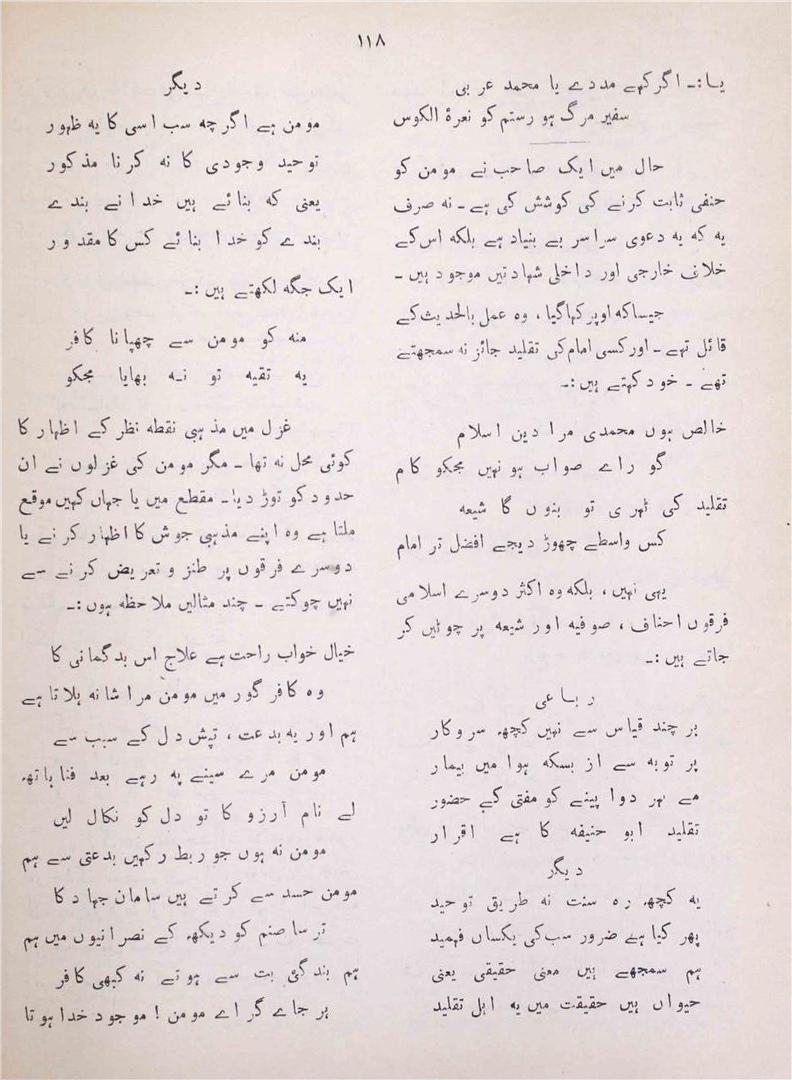 ۱۱۸
یا:۔ اگر کہے مددے یا محمد عربی
سفیر مرگ ہو رستم کو نعرۂ الکوس
حال میں ایک صاحب نے مومن کو
حنفی ثابت کرنے کی کوشش کی ہے ۔ نہ صرف
یہ کہ یہ دعوی سراسر بے بنیاد ہے بلکہ اس کے
خلاف خارجی اور داخلی شہادتیں موجود ہیں ۔
جیسا کہ اوپر کہا گیا ، وہ عمل بالحدیث کے
قائل تھے ۔ اور کسی امام کی تقلید جائز نہ سمجھتے
تھے ۔ خود کہتے ہیں:۔
خالص ہوں محمدی مرا دین اسلام
گو راے صواب ہو نہیں مجکو کام
تقلید کی ٹہری تو بنوں گا شیعہ
کس واسطے چھوڑ دیجے افضل تر امام
یہی نہیں ، بلکہ وہ اکثر دوسرے اسلامی
فرقوں احناف ، صوفیہ اور شیعہ پر چوٹیں کر
جاتے ہیں:۔
رباعی
ہر چند قیاس سے نہیں کچھ سروکار
پر توبہ سے از بسکہ ہوا میں بیمار
مے بہر دوا پینے کو مفتی کے حضور
تقلید ابو حنیفہ کا ہے اقرار
دیگر
یہ کچھ رہ سنت نہ طریق توحید
پھر کیا ہے ضرور سب کی یکساں فہمید
ہم سمجھے ہیں معنی حقیقی یعنی
حیواں ہیں حقیقت میں یہ اہل تقلید
دیگر
مومن ہے اگرچہ سب اسی کا یہ ظہور
توحید وجودی کا نہ کرنا مذکور
یعنی کہ بنائے ہیں خدا نے بندے
بندے کو خدا بنائے کس کا مقدور
ایک جگہ لکھتے ہیں:۔
منہ کو مومن سے چھپانا کافر
یہ تقیہ تو نہ بھایا مجکو
غزل میں مذہبی نقطہ نظر کے اظہار کا
کوئی محل نہ تھا ۔ مگر مومن کی غزلوں نے ان
حدود کو توڑ دیا۔ مقطع میں یا جہاں کہیں موقع
ملتا ہے وہ اپنے مذہبی جوش کا اظہار کرنے یا
دوسرے فرقوں پر طنز و تعریض کرنے سے
نہیں چوکتے ۔ چند مثالیں ملاحظہ ہوں:۔
خیال خواب راحت ہے علاج اس بدگمانی کا
وہ کافر گور میں مومن مرا شانہ ہلاتا ہے
ہم اور یہ بدعت ، تپش دل کے سبب سے
مومن مرے سینے پہ رہے بعد فنا ہاتھ
لے نام آرزو کا تو دل کو نکال لیں
مومن نہ ہوں جو ربط رکہیں بدعتی سے ہم
مومن حسد سے کرتے ہیں سامان جہاد کا
ترسا صنم کو دیکھ کے نصرانیوں میں ہم
ہم بندگئ بت سے ہوتے نہ کبھی کافر
ہر جاے گر اے مومن ! موجود خدا ہوتا